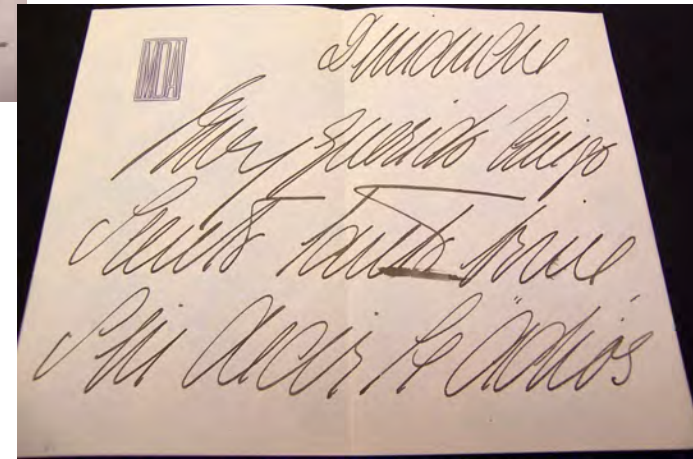 MDA
Dimanche
Muy querido Amigo
Siento tanto irme
Sin decirle "adiós"